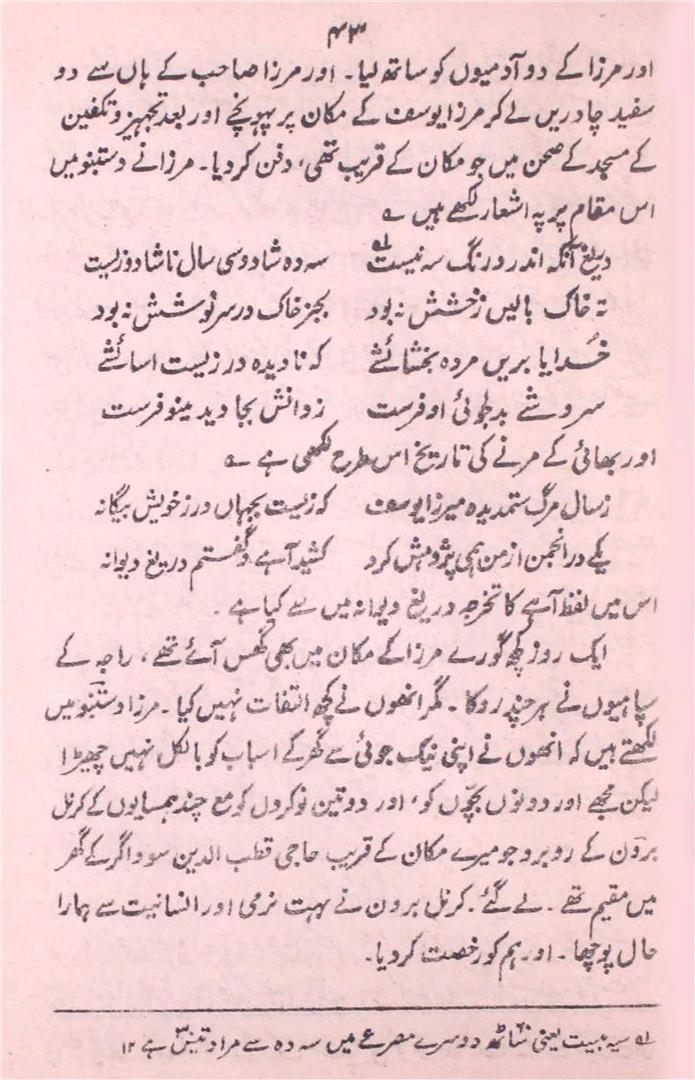 ۴۳
اور مرزا کے دو آدمیوں کو ساتھ لیا۔ اور مرزا صاحب کے ہاں سے دو
سفید چادریں لے کر مرزا یوسف کے مکان پر پہونچے اور بعد تجہیز و تکفین
کے مسجد کے صحن میں جو مکان کے قریب تھی، دفن کر دیا۔ مرزا نے دستنبو میں
اس مقام پر یہ اشعار لکھے ہیں ؎
دریغ آنکہ اندر درنگ سہ بیست؎۱ سہ دہ شاد و سی سال ناشاد زیست
تہ خاک بالیں زخشتش نہ بود بجز خاک در سر نوشتش نہ بود
خدایا بریں مردہ بخشائشے کہ نادیدہ در زیست اسائشے
سروشے بدلجوئی او فرست روانش بجاوید مینو فرست
اور بھائی کے مرنے کی تاریخ اس طرح لکھی ہے ؎
ز سال مرگ ستمدیدہ میرزا یوسف کہ زیست بجہاں در ز خویش بیگانہ
یکے در انجمن از من ہمی پژوہش کرد کشید آہے و گفتم دریغ دیوانہ
اس میں لفظ آہے کا تخرجہ دریغ دیوانہ میں سے کیا ہے۔
ایک روز کچھ گورے مرزا کے مکان میں بھی گھس آئے تھے، راجہ کے
سپاہیوں نے ہر چند روکا۔ مگر انھوں نے کچھ التفات نہیں کیا۔ مرزا دستنبو میں
لکھتے ہیں کہ انھوں نے اپنی نیک جوئی سے گھر کے اسباب کو بالکل نہیں چھیڑا
لیکن مجھے اور دونوں بچّوں کو، اور دو تین نوکروں کو مع چند ہمسایوں کے کرنل
برون کے روبرو جو میرے مکان کے قریب حاجی قطب الدین سوداگر کے گھر
میں مقیم تھے۔ لے گئے۔ کرنل برون نے بہت نرمی اور انسانیت سے ہمارا
حال پوچھا۔ اور ہم کو رخصت کر دیا۔
؎۱ سہ بیست یعنی ساٹھ دوسرے مصرعے میں سہ دہ سے مراد تیس ہے ۱۲